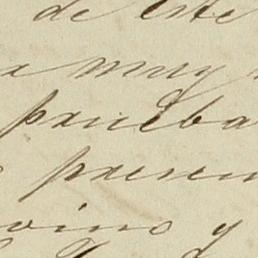 de este
a muy
prueba
presen
vino y